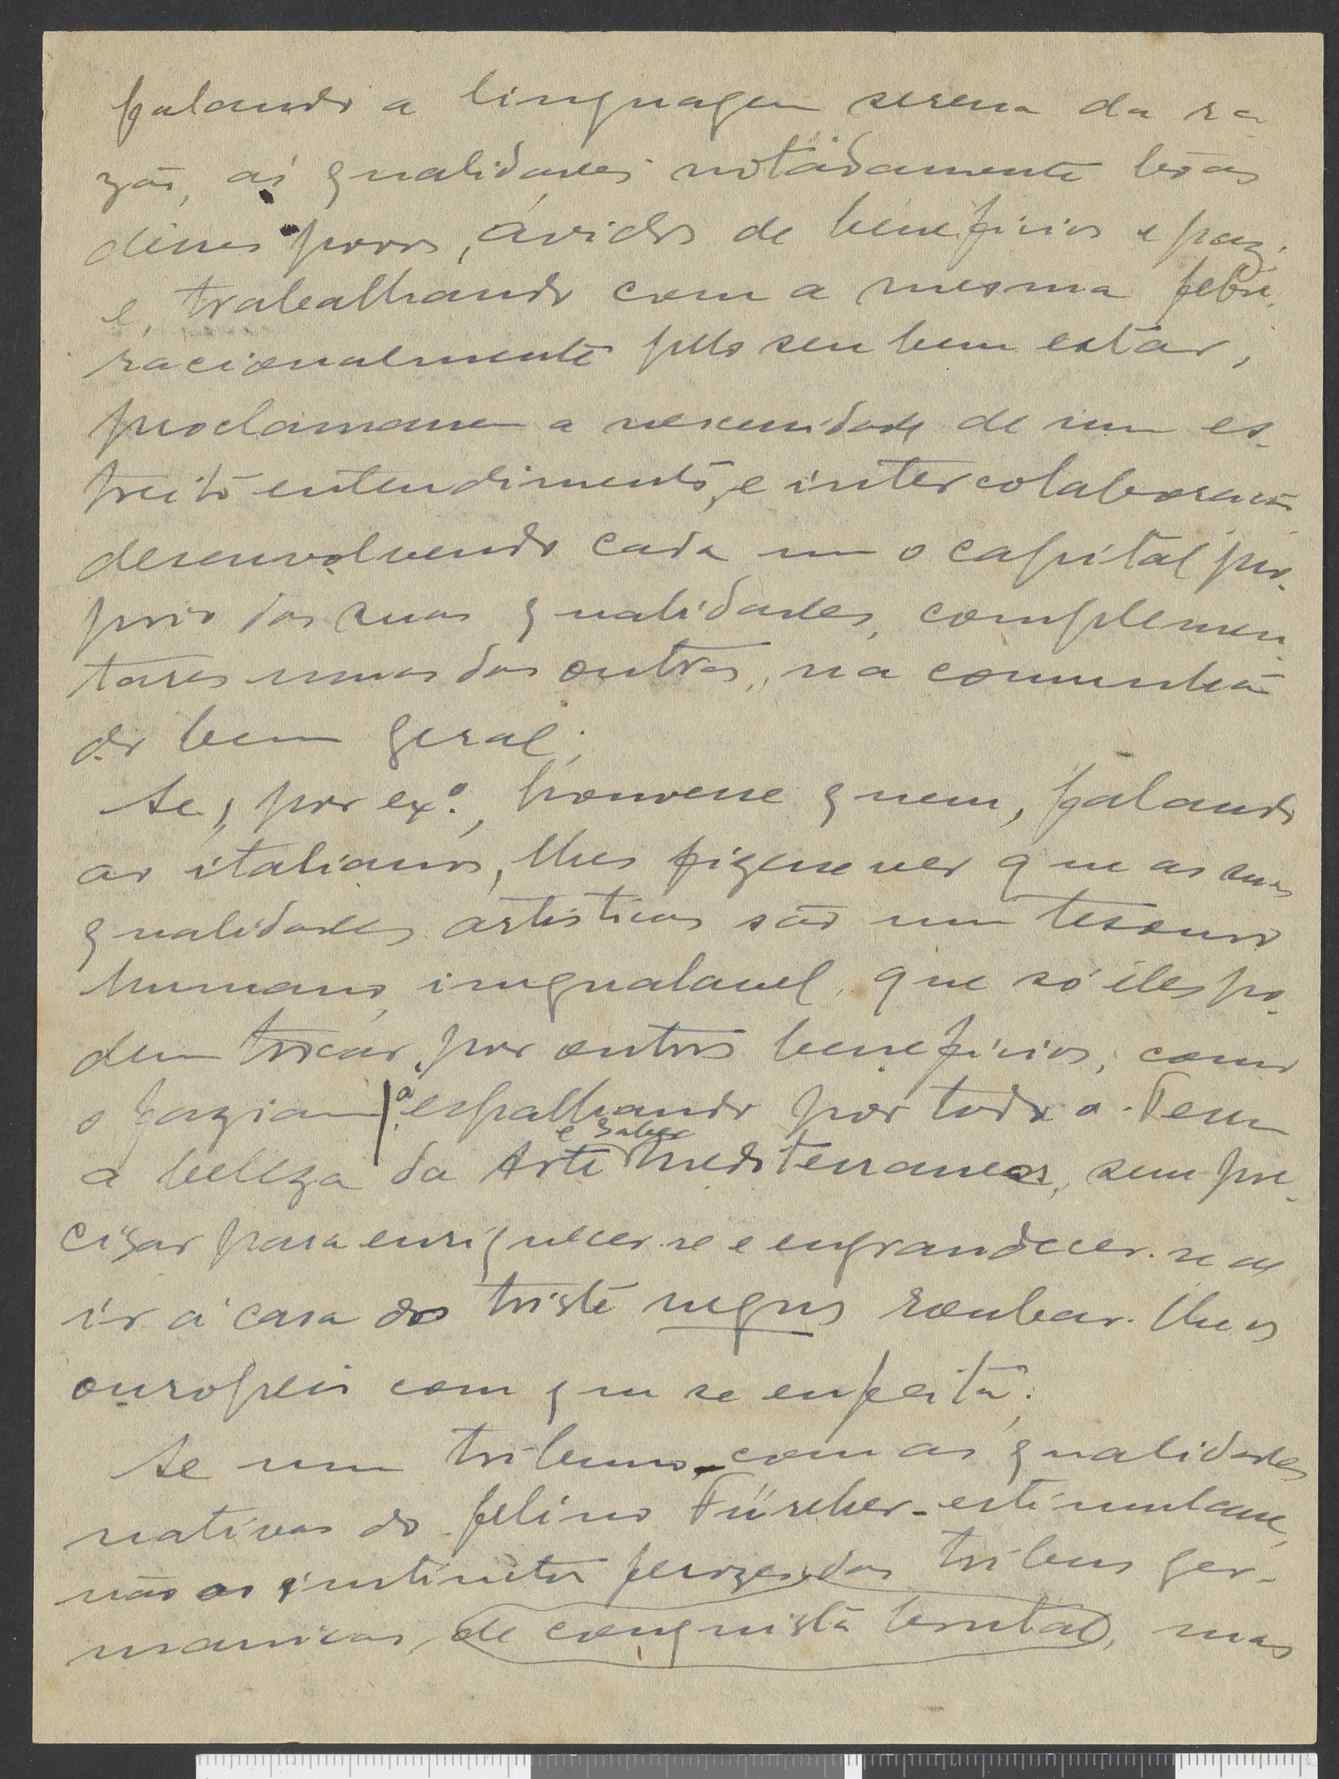 falando a linguagem serena da ra-
zão, ás qualidades notádamente bôas
dêsses povos, ávidos de benefícios e paz,
e, trabalhando com a mesma febre,
racionalmente pelo seu bem estar,
proclamassem a necessidade de um es-
treito entendimento, e intercolaboração
desenvolvendo cada um o capital pró-
prio das suas qualidades, complemen-
tares umas das outras, na comunhão
do bem geral;
Se, por exº., houvesse quem, falando
ao italianos, lhes fizesse ver que as suas
qualidades artísticas são um tesouro
humano, inegualavel, que só êles po-
dem trocar por outros benefícios, como
o faziam espalhando por todo o
a beleza da Arte e Saber mediterraneos, sem pre-
cisar para enriquecer-se e engrandecer-se de
ir á casa do triste negus roubar-lhe os
ouropeis com que se enfeita;
Se um tribuno, com as qualidades
nativas do felino Füreher - estimulasse,
não os instintos ferozes das tribus ger-
manicas, de conquista brutal, mas